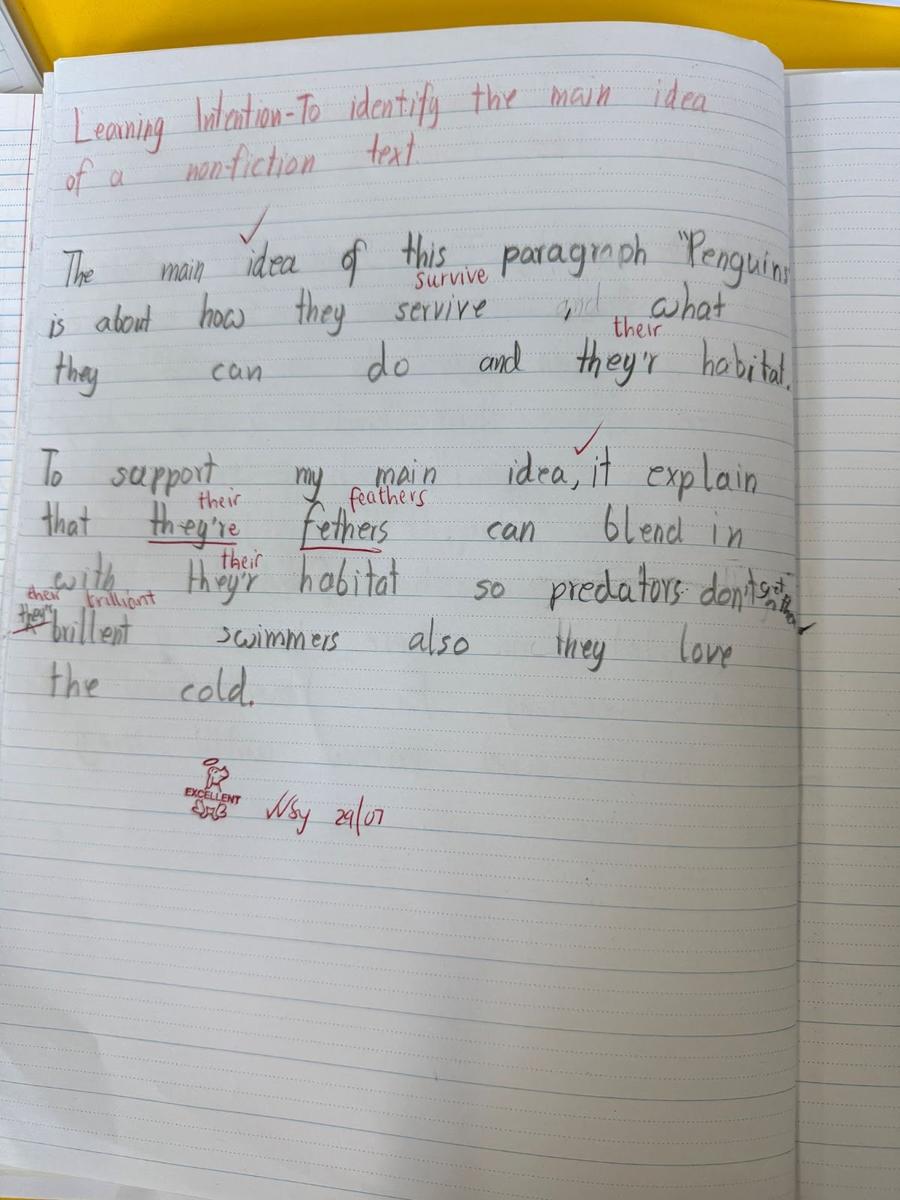 Learning Intention-To identify the main idea
of a non-fiction text
The main idea of this paragraph "Penguins
survive
is about how they servive and what
their
they can do and they'r habitat.
To support my main idea, it explain
their feathers
that they're fethers can blend in
their
with they'r habitat so predators don't get
their brilliant
they'r brillent swimmers also they love
the cold.
EXCELLENT
29/07